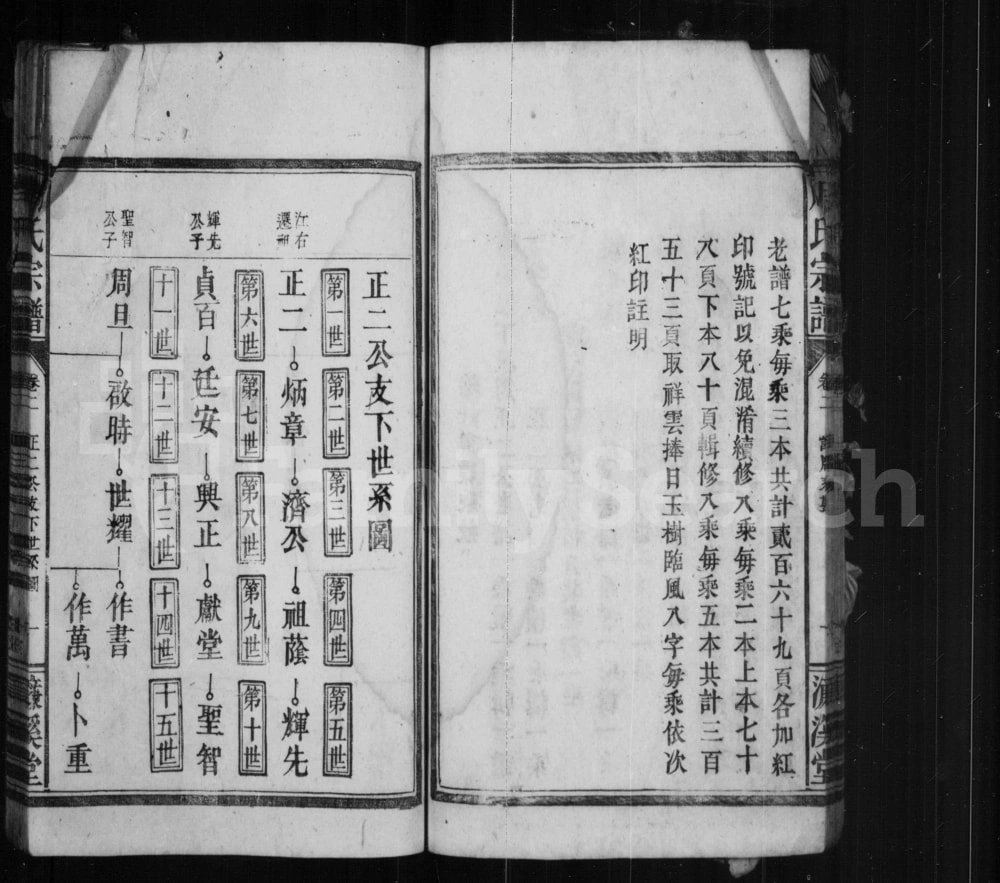 老譜七乘每乘三本共計貳百六十九頁各加紅
印號記以免混淆續修八乘每乘二本上本七十
八頁下本八十頁輯修八乘每乘五本共計三百
五十三頁取祥雲捧日玉樹臨風八字每乘依次
紅印註明
周氏宗譜
卷二
濂溪堂
正二公支下世系圖
第一世 第二世 第三世 第四世 第五世
江右
遷
正二 炳章 濟公 祖蔭 輝先
第六世 第七世 第八世 第九世 第十世
輝先
公子
貞百 廷安 興正 獻堂 聖智
十一世 十二世 十三世 十四世 十五世
聖智
公子
周旦 啟時 世耀 作書
作萬 卜重
氏宗譜
卷二
正二公支下世系圖
濂溪堂
FamilySearch